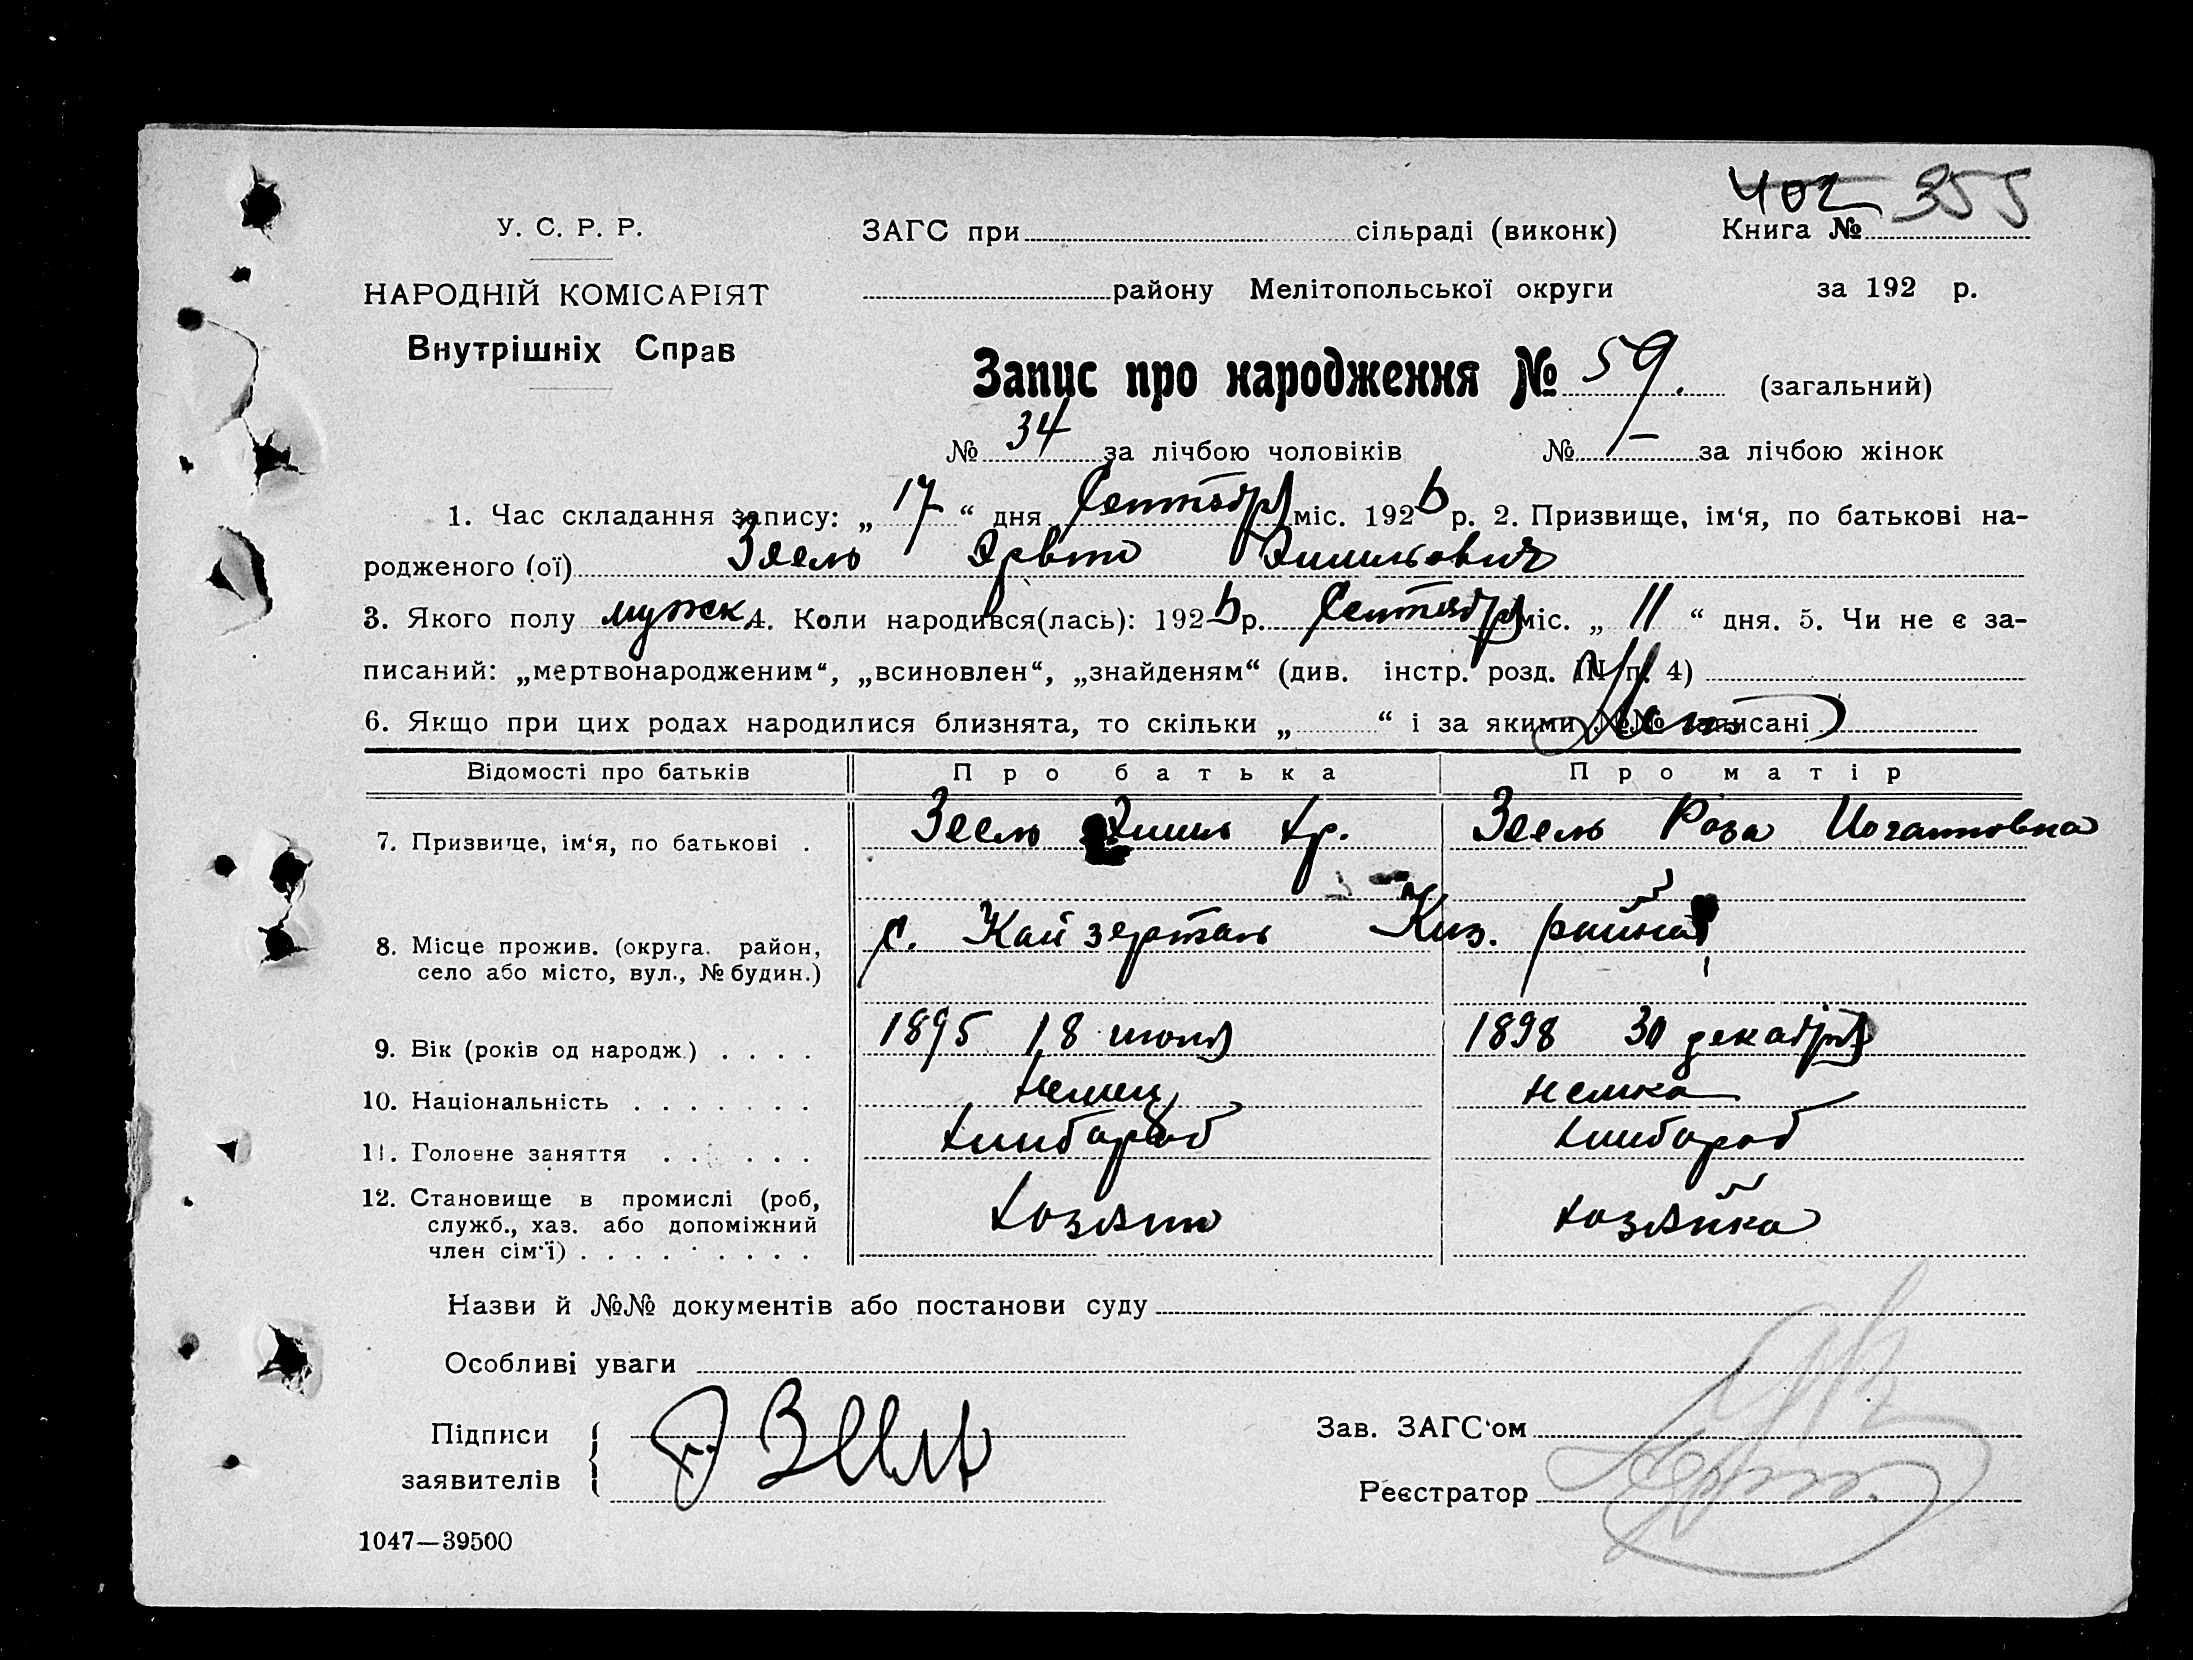 402 355
У. С. Р. Р. ЗАГС при сільраді (виконк) Книга №
НАРОДНІЙ КОМІСАРІЯТ району Мелітопольської округи за 192 р.
Внутрішніх Справ
Запис про народження № 59. (загальний)
№ 34 за лічбою чоловіків № — за лічбою жінок
1. Час складання запису: „ 17 “ дня Сентября міс. 1926 р. 2. Призвище, ім‘я, по батькові на-
родженого (ої) Зеель Эрвин Эмильевич
3. Якого полу мужск 4. Коли народився(лась): 1926 р. Сентября міс. „ 11 “ дня. 5. Чи не є за-
писаний: „мертвонародженим“, „всиновлен“, „знайденям“ (див. інстр. розд. III п. 4)
6. Якщо при цих родах народилися близнята, то скільки „ “ і за якими №№ записані Нет
Відомості про батьків Про батька Про матір
7. Призвище, ім‘я, по батькові . Зеель Эмиль Хр. Зеель Роза
8. Місце прожив. (округа. район, с. Кайзерталь Киз. района
село або місто, вул., № будин.)
9. Вік (років од народж.) . . . . 1895 18 июня 1898 30 декабря
10. Національність . . . . . . . немец немка
11. Головне заняття . . . . . . хлебороб хлебороб
12. Становище в промислі (роб, хозяин хозяйка
служб., хаз. або допоміжний
член сім‘ї) . . . . . . . . .
Назви й №№ документів або постанови суду
Особливі уваги
Підписи Зеель Зав. ЗАГС‘ом
заявителів Реєстратор
1047—39500